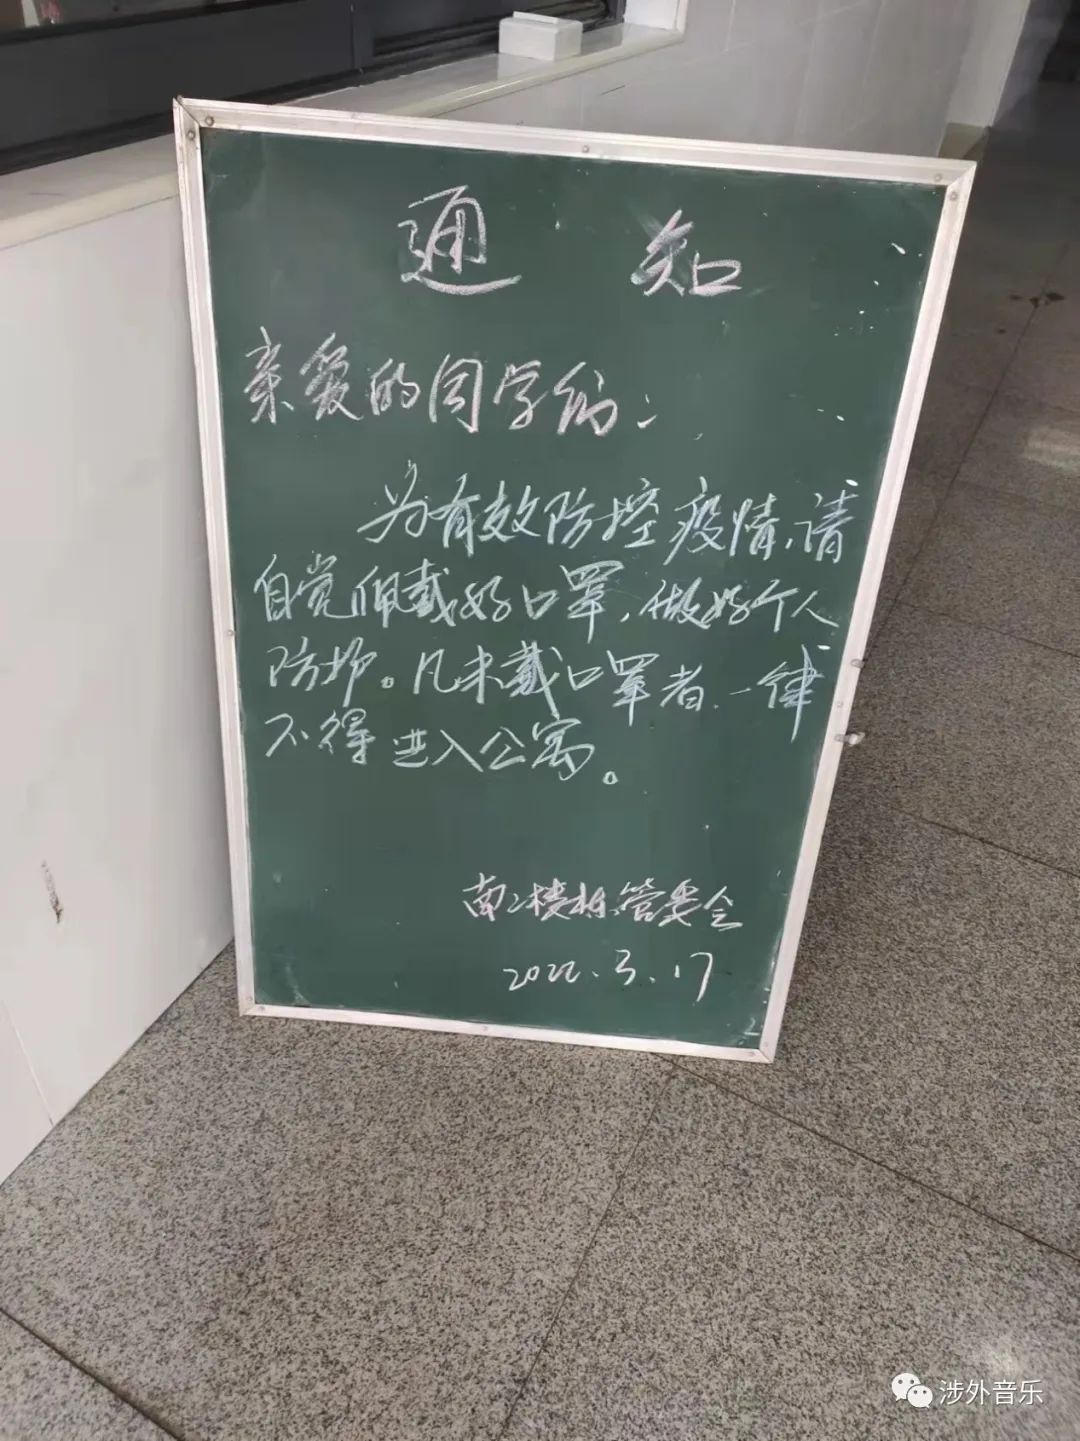 通知
亲爱的同学们:
为有效防控疫情,请
自觉佩戴好口罩,做好个人
防护。凡未戴口罩者,一律
不得进入公寓。
南二楼栋管委会
2022.3.17
涉外音乐